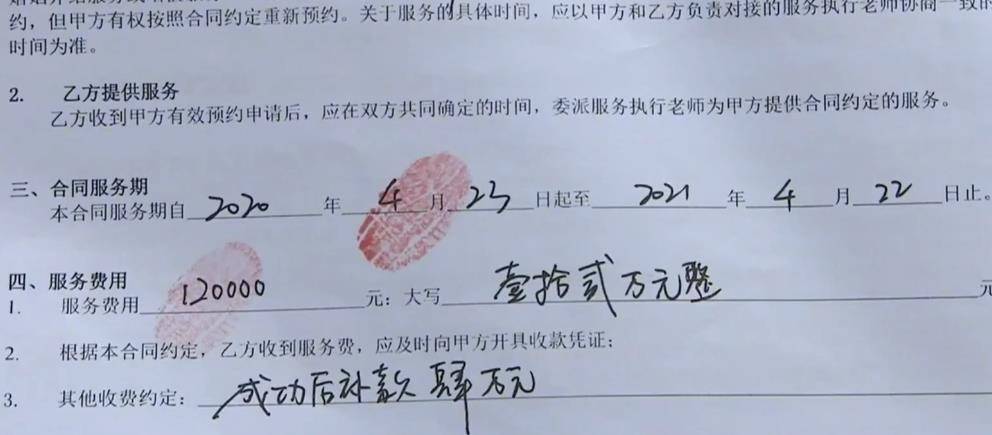 约，但甲方有权按照合同约定重新预约。关于服务的具体时间，应以甲方和乙方负责对接的服务执行老师协商一致的
时间为准。
2. 乙方提供服务
乙方收到甲方有效预约申请后，应在双方共同确定的时间，委派服务执行老师为甲方提供合同约定的服务。
三、合同服务期
本合同服务期自 2020 年 4 月 23 日起至 2021 年 4 月 22 日止。
四、服务费用
1. 服务费用 120000 元：大写 壹拾贰万元整 元
2. 根据本合同约定，乙方收到服务费，应及时向甲方开具收款凭证；
3. 其他收费约定： 成功后补款肆万元